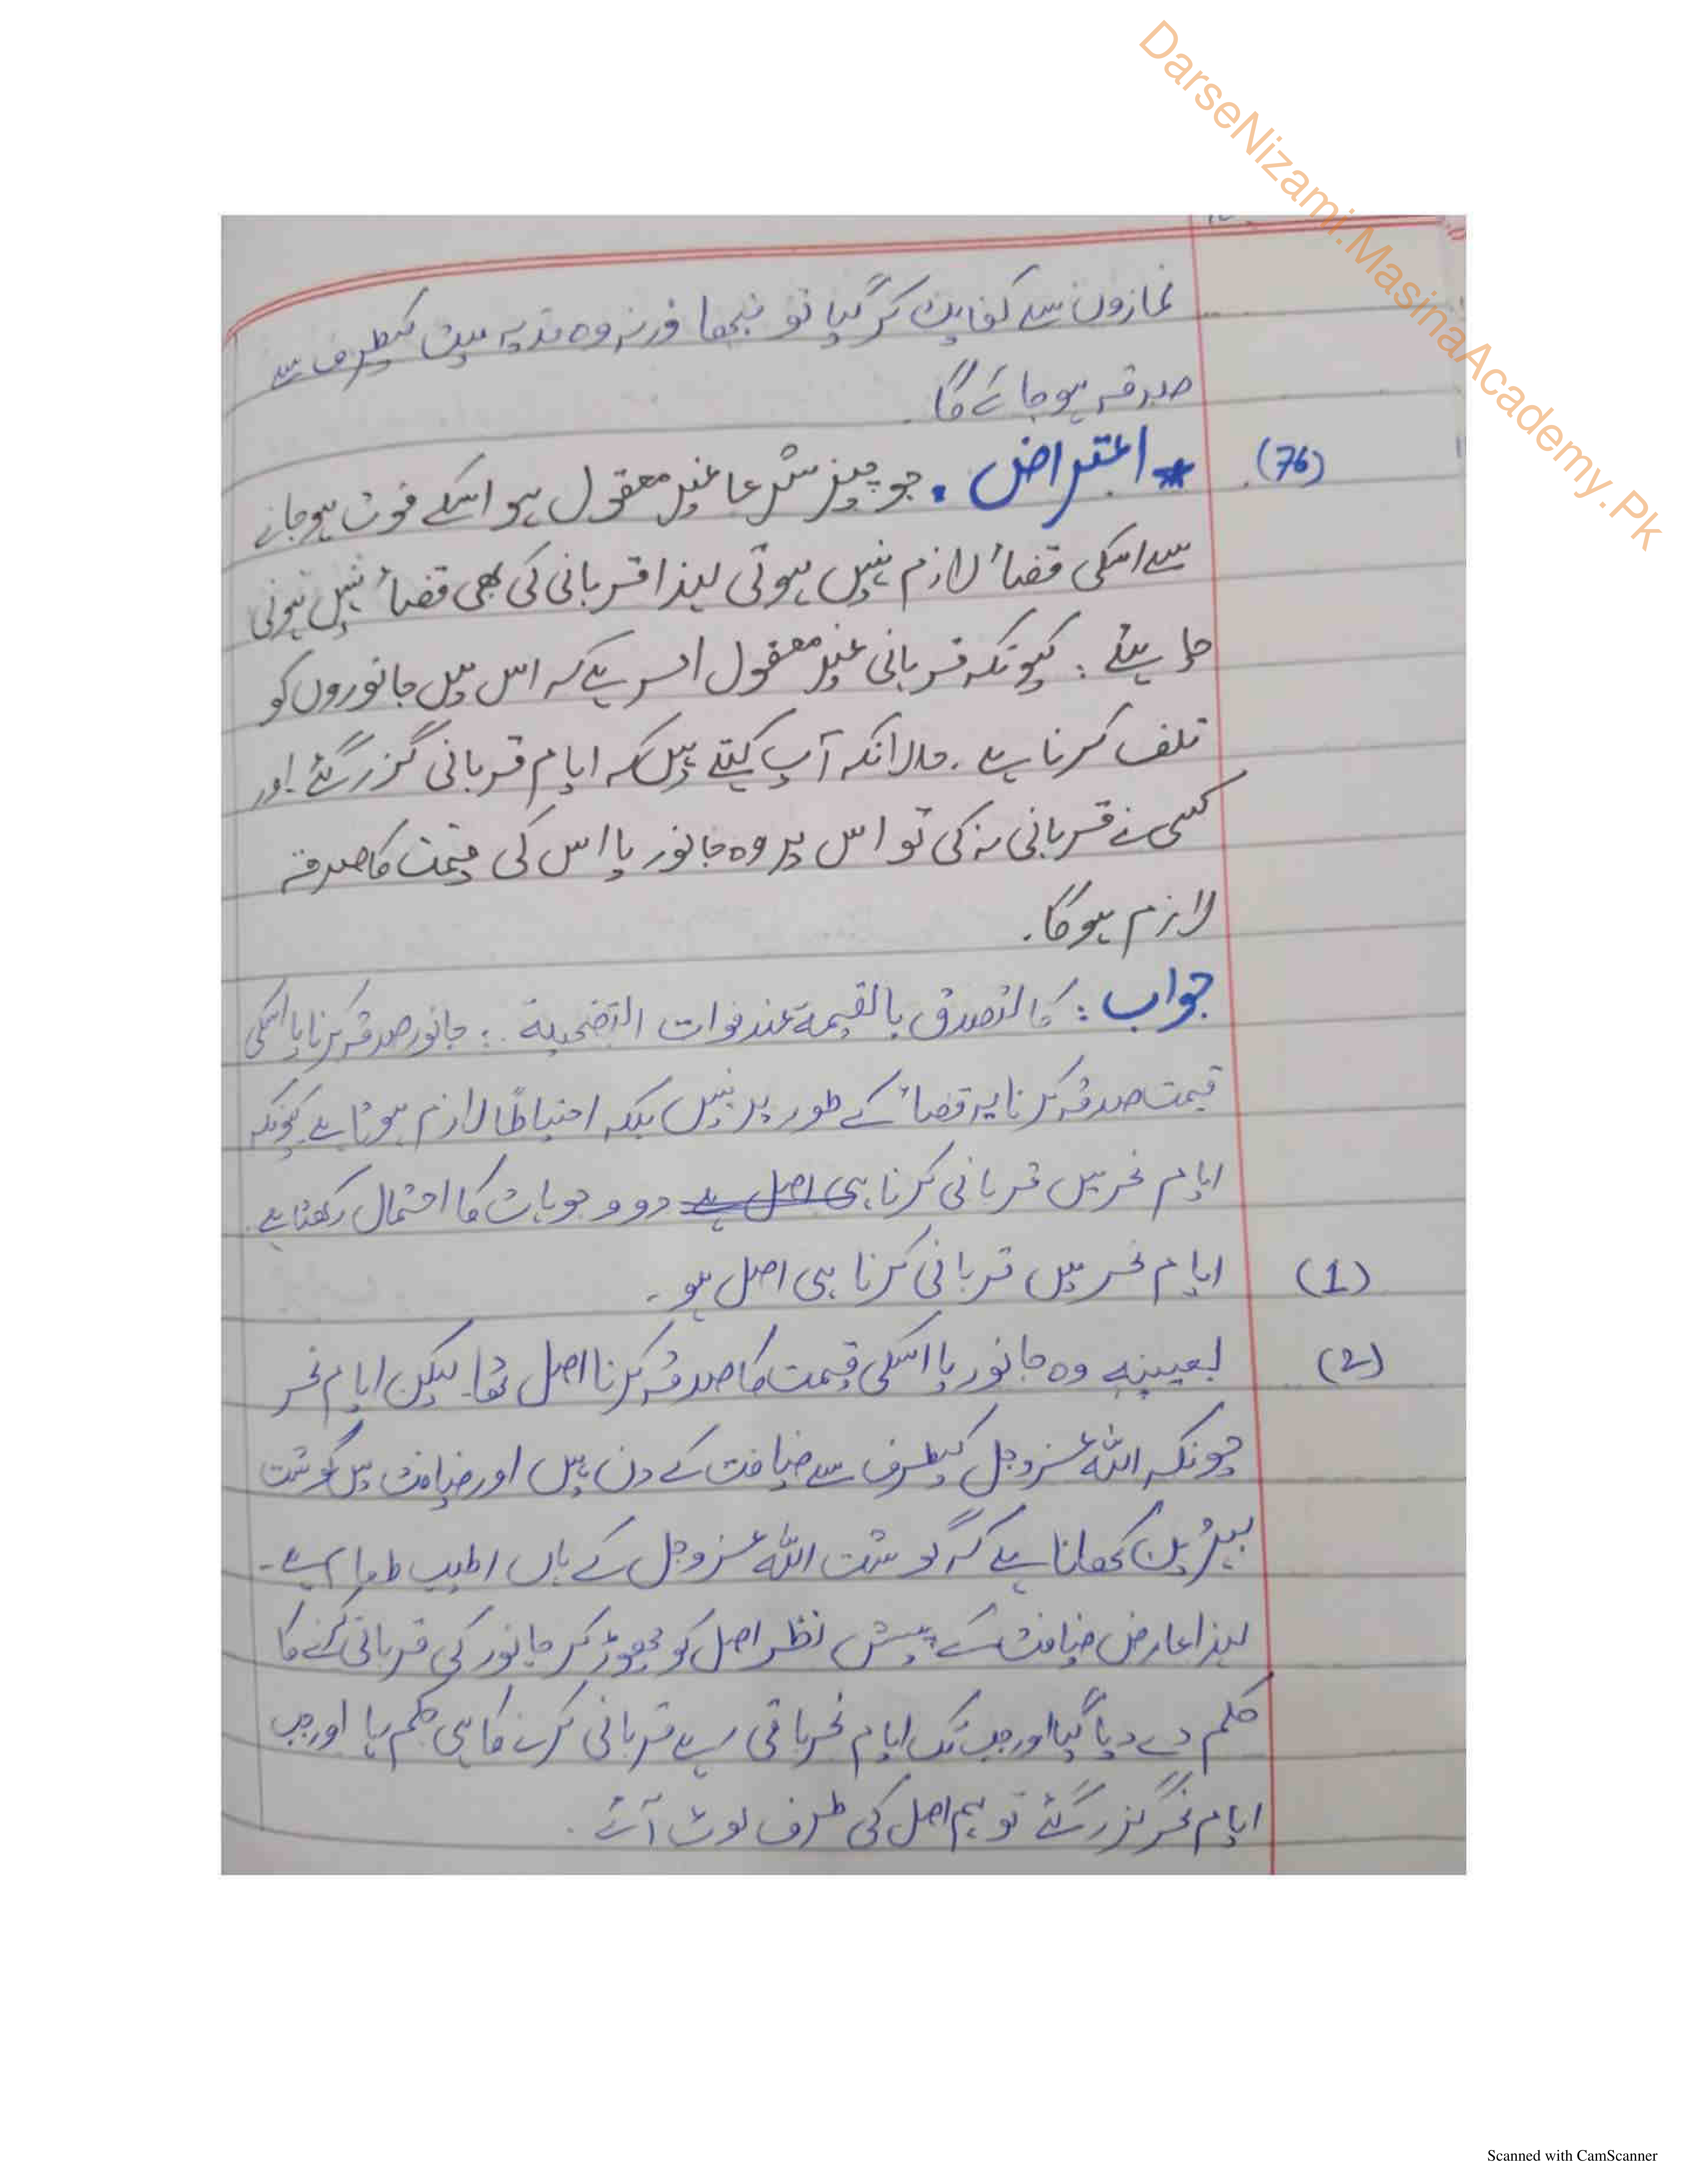 DarseNizami.MasinaAcademy.Pk
نمازوں سے کفایت کر گیا تو فبھا ورنہ وہ فدیہ میت کیطرف سے
صدقہ ہو جائے گا.
(76) * اعتراض . جو چیز شرعا غیر معقول ہو اسکے فوت ہو جانے
سے اسکی قضاﺀ لازم نہیں ہوتی لہذا قربانی کی بھی قضاﺀ نہیں ہونی
چاہیئے : کیونکہ قربانی غیر معقول امر ہے کہ اس میں جانوروں کو
تلف کرنا ہے . حالانکہ آپ کہتے ہیں کہ ایام قربانی گزر گئے اور
کسی نے قربانی نہ کی تو اس پر وہ جانور یا اس کی قیمت کا صدقہ
لازم ہوگا.
جواب : کالتصدق بالقیمة عند فوات التضحیة : جانور صدقہ کرنا یا اسکی
قیمت صدقہ کرنا یہ قضاﺀ کے طور پر نہیں بلکہ احتیاطًا لازم ہوتا ہے کیونکہ
ایام نحر میں قربانی کرنا ہی اصل ہے دو وجوہات کا احتمال رکھتا ہے.
(1) ایام نحر میں قربانی کرنا ہی اصل ہو ۔
(2) بعینہ وہ جانور یا اسکی قیمت کا صدقہ کرنا اصل تھا. لیکن ایام نحر
چونکہ اللہ عزوجل کیطرف سے ضیافت کے دن ہیں اور ضیافت میں گوشت
بہترین کھانا ہے کہ گوشت اللہ عزوجل کے ہاں اطیب طعام ہے ۔
لہذا عارض ضیافت کے پیش نظر اصل کو چھوڑ کر جانور کی قربانی کرنے کا
حکم دے دیا گیا اور جب تک ایام نحر باقی رہے قربانی کرنے کا ہی حکم رہا اور جب
ایام نحر گزر گئے تو ہم اصل کی طرف لوٹ آئے .
Scanned with CamScanner